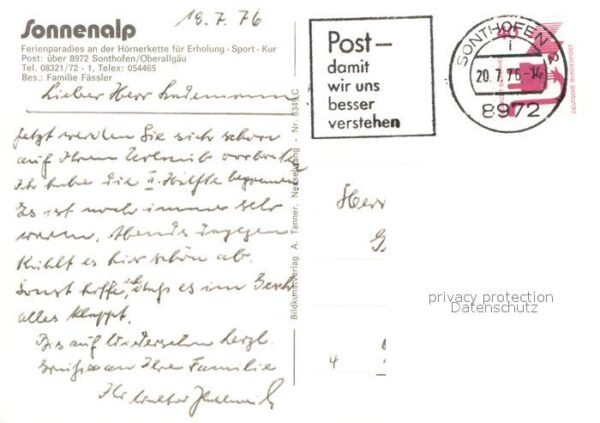 19.7.76
Sonnenalp
Ferienparadies an der Hörnerkette für Erholung - Sport - Kur
Post: über 8972 Sonthofen/Oberallgäu
Tel. 08321/72 - 1, Telex: 054465
Bes.: Familie Fässler
Lieber Herr
Jetzt werden Sie sich schon
auf Ihren Urlaub vorbereiten
Ich habe die II. Hälfte begonnen
Es ist noch immer sehr
warm. Abends dagegen
kühlt es hier schön ab.
Sonst hoffe ich, daß es im Gesch.
alles klappt.
Bis auf Wiedersehn herzl.
Grüße an Ihre Familie
Ihr
Bildkunstverlag A. Tanner, Nesselwang - Nr.
Post –
damit
wir uns
besser
verstehen
40
SONTHOFEN 2
i
20.7.76-14
8972
DEUTSCHE BUNDESPOST
Herr
4
privacy protection
Datenschutz